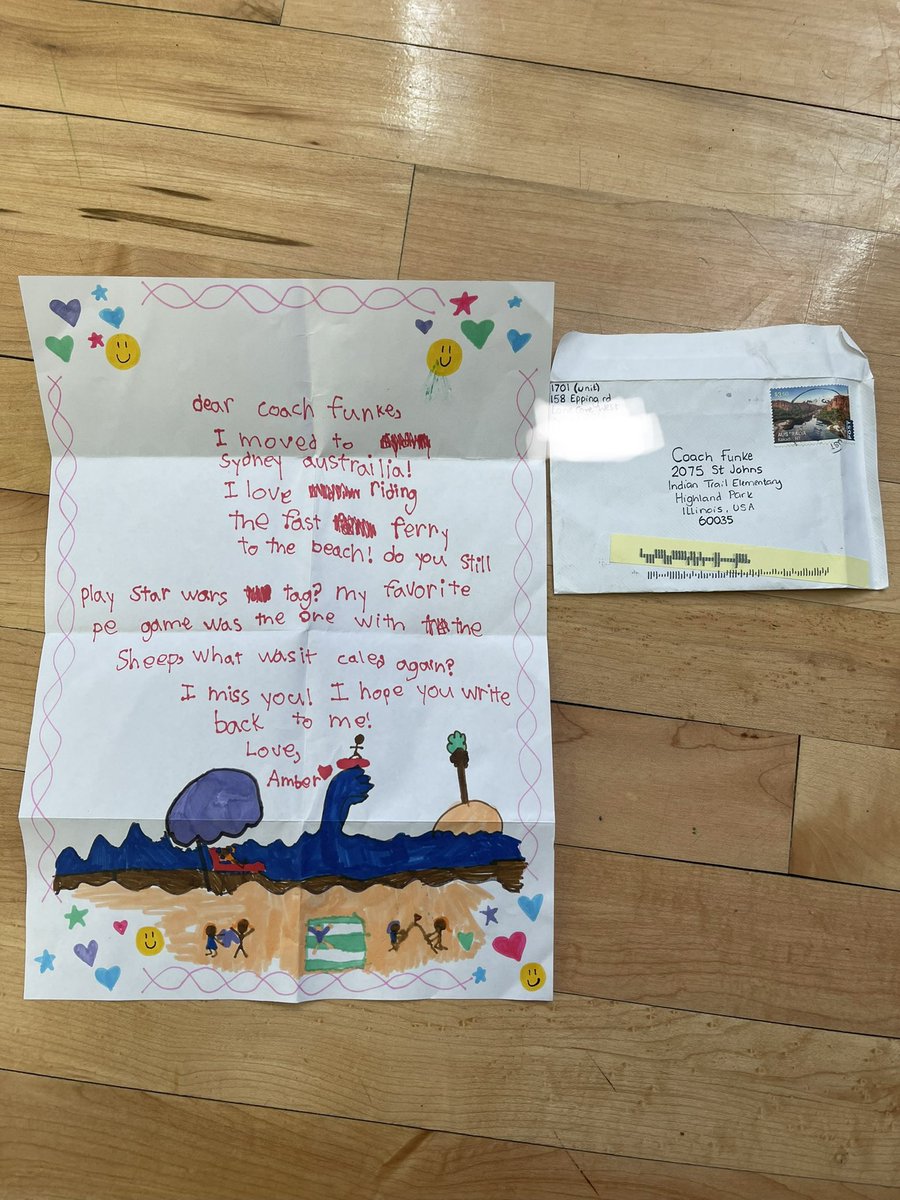 dear coach funke,
I moved to
Sydney austrailia!
I love riding
the fast ferry
to the beach! do you still
play star wars tag? my favorite
pe game was the one with the
Sheep, what was it caled again?
I miss you! I hope you write
back to me!
Love,
Amber
1701 (unit)
158 Epping rd
Coach Funke
2075 St Johns
Indian Trail Elementary
Highland Park
Illinois, USA
60035
AUSTRALIA